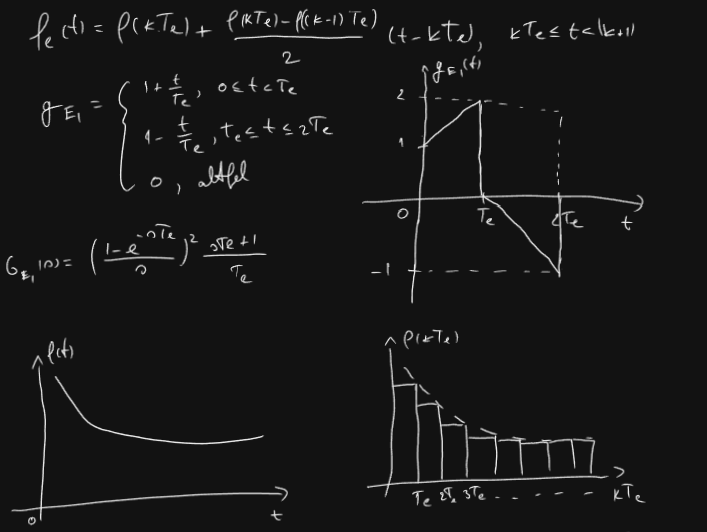 f_e(t) = f(kTe) + (f(kTe) - f((k-1)Te))/2 (t - kTe), kTe ≤ t < (k+1)
g_E1 = { 1 + t/Te, 0 ≤ t < Te
1 - t/Te, te ≤ t ≤ 2Te
0, altfel
G_E1(s) = ((1 - e^(-sTe))/s)^2 (sTe + 1)/Te
g_E1(t)
2
1
0
Te
2Te
t
-1
f(t)
0
t
f(kTe)
Te 2Te 3Te - - - - - - kTe